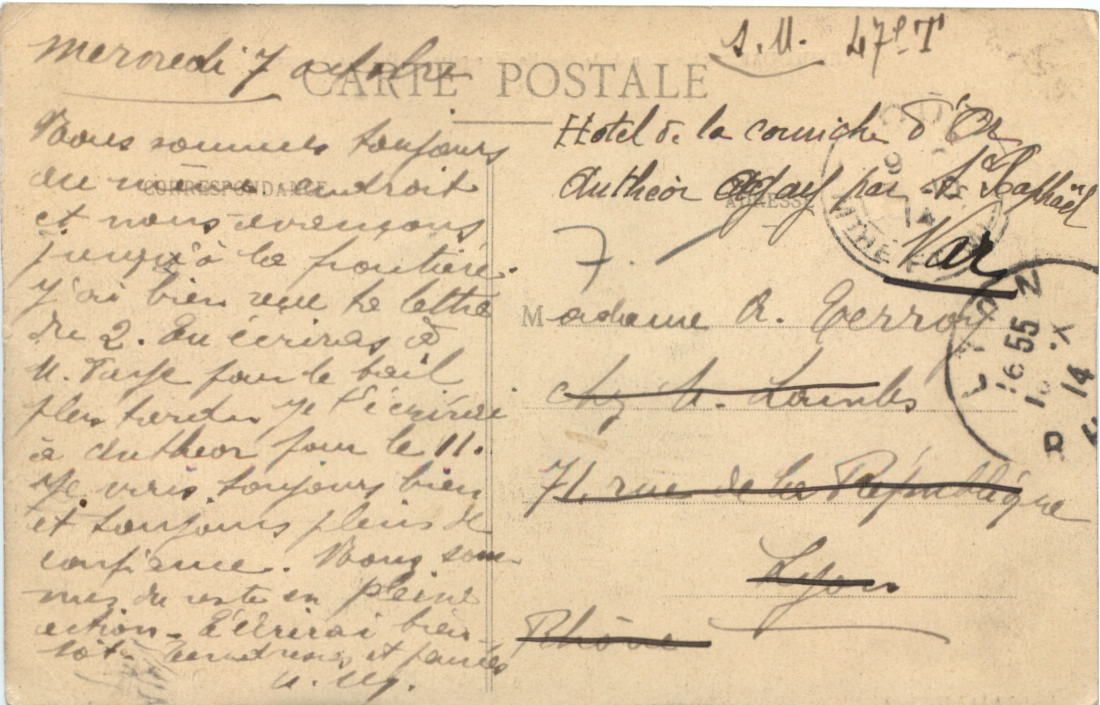 mercredi 7 octobre
S.M. 47e T
CARTE POSTALE
Nous sommes toujours
au même endroit
et nous avançons
jusqu'à la frontière.
J'ai bien reçu ta lettre
du 2. Tu écriras à
M. pour le bail
plus tard. Je t'écrirai
à Antheor pour le 11.
Je vais toujours bien
et toujours plein de
confiance. Nous som-
mes du reste en pleine
action. T'écrirai bien-
tôt. Tendresses et pensées
CORRESPONDANCE
Hotel de la corniche d'Or
Antheor Agay par St Raphaël
ADRESSE
Var
7.
Madame A. Terroy
chez M.
71, rue de la République
Lyon
Rhône
LYON
16 55
14